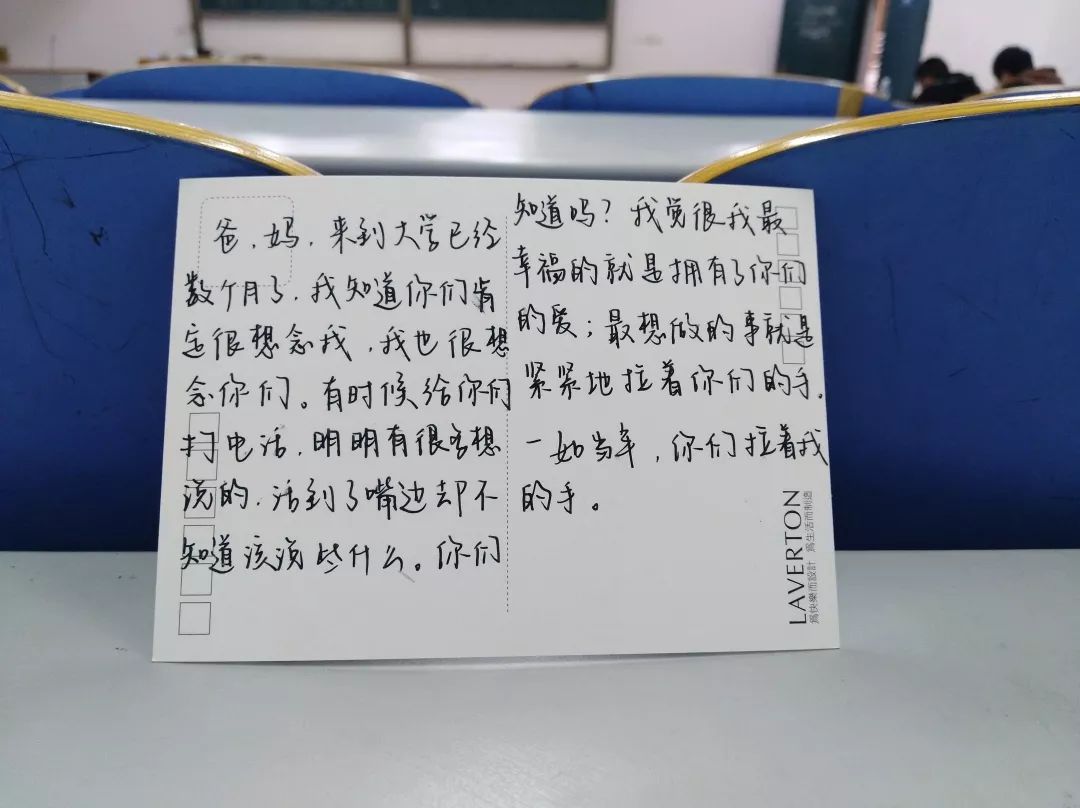 爸、妈，来到大学已经
数个月了，我知道你们肯
定很想念我，我也很想
念你们。有时候给你们
打电话，明明有很多想
说的，话到了嘴边却不
知道该说些什么。你们
知道吗？我觉很我最
幸福的就是拥有了你们
的爱；最想做的事就是
紧紧地拉着你们的手。
一如当年，你们拉着我
的手。
LAVERTON
爲快樂而設計 爲生活而制造